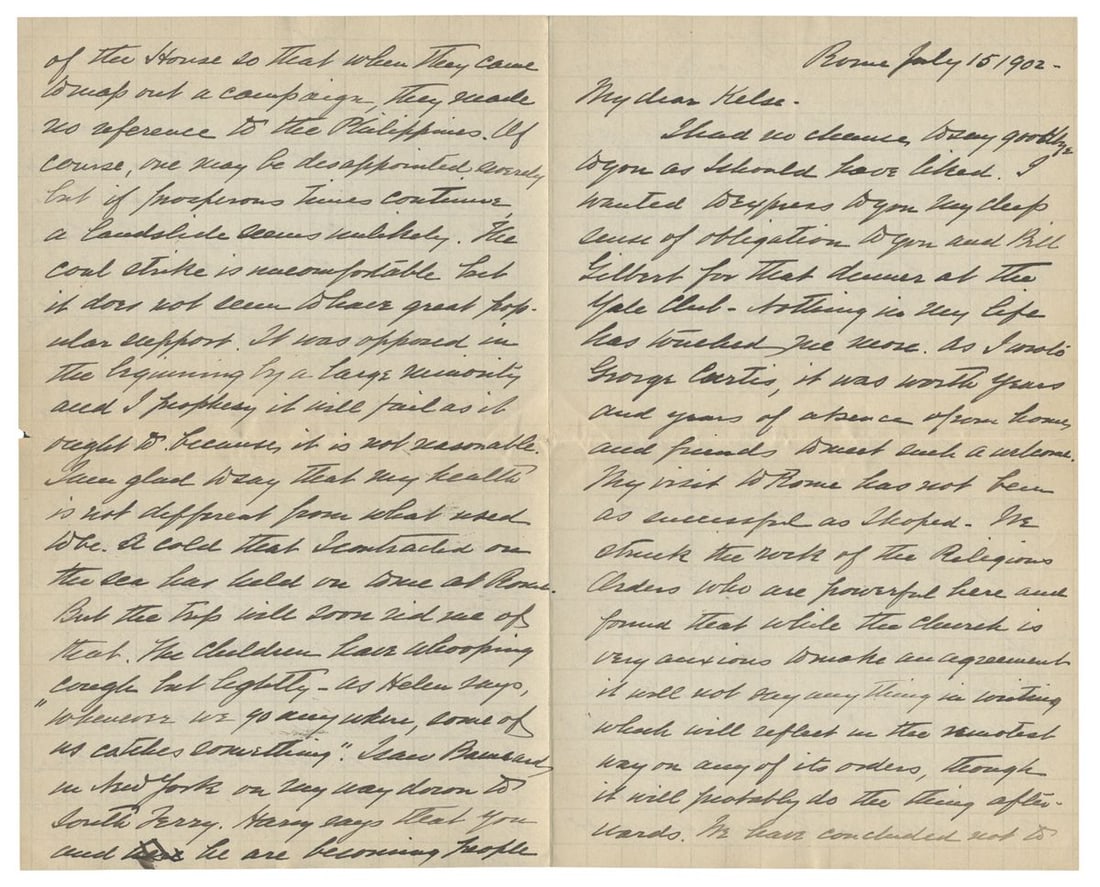 Rome July 15 1902-
My dear Kelse-
I had no chance to say good bye
to you as I should have liked. I
wanted to express to you my deep
sense of obligation to you and Bill
Gilbert for that dinner at the
Yale Club- Nothing in my life
has touched me more. As I wrote
George Curtis, it was worth years
and years of absence from home
and friends to meet such a welcome.
My visit to Rome has not been
as successful as I hoped- We
struck the rock of the Religious
Orders who are powerful here and
found that while the church is
very anxious to make an agreement
it will not say any thing in writing
which will reflect in the remotest
way on any of its orders, though
it will probably do the thing after-
wards. We have concluded not to
of the House so that when they came
to map out a campaign, they made
no reference to the Philippines. Of
course, one may be disappointed severely
but if prosperous times continue,
a landslide seems unlikely. The
coal strike is uncomfortable but
it does not seem to have great pop-
ular support. It was opposed in
the beginning by a large minority
and I prophesy it will fail as it
ought to because it is not reasonable.
I am glad to say that my health
is not different from what used
to be. A cold that I contracted on
the sea has held on to me at Rome.
But the trip will soon rid me of
that. The children have whooping
cough but lightly- as Helen says,
"whenever we go any where, some of
us catches something". I saw
in New York on my way down to
South Ferry. Harry says that you
and he are becoming people